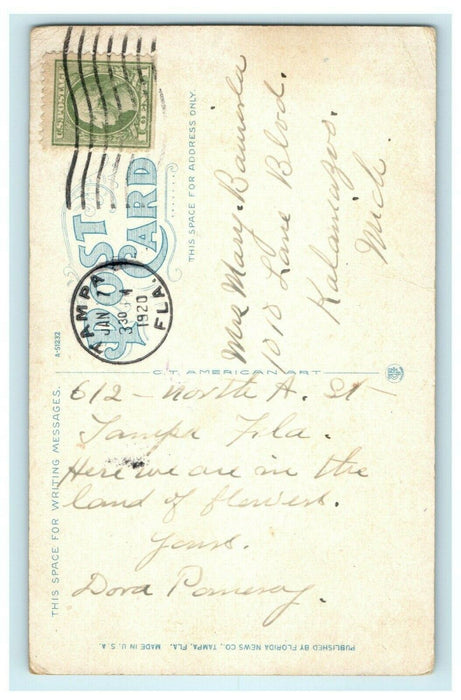 POST
CARD
THIS SPACE FOR ADDRESS ONLY.
U.S. POSTAGE
1 CENT 1
TAMPA
JAN 7
330
1920
FLA.
A-51232
Mary
1018 Lane Blvd.
Kalamazoo.
Mich.
C.T. AMERICAN ART
THIS SPACE FOR WRITING MESSAGES.
612 - North A. St -
Tampa Fla.
Here we are in the
land of flowers.
Yours.
Dora Pomeroy.
PUBLISHED BY FLORIDA NEWS CO., TAMPA, FLA. MADE IN U.S.A.